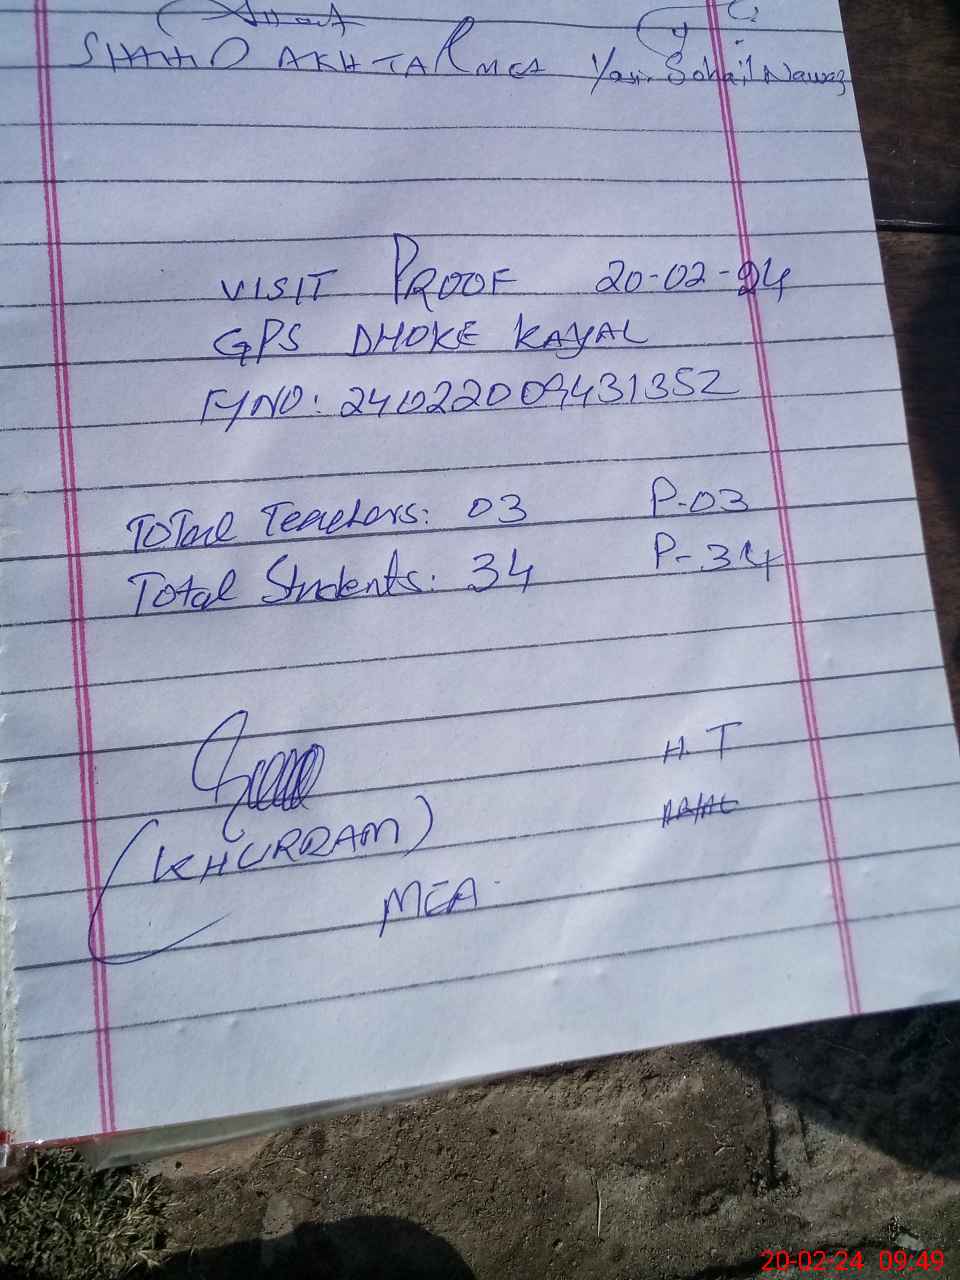 SHAHID AKHTAR MEA Yasir Sohail Nawaz
VISIT PROOF 20-02-24
GPS DHOKE KAYAL
F/NO: 24022009431352
ToTal Teachers: 03 P-03
Total Students: 34 P-34
H.T
(KHURRAM)
MEA
20-02-24 09:49